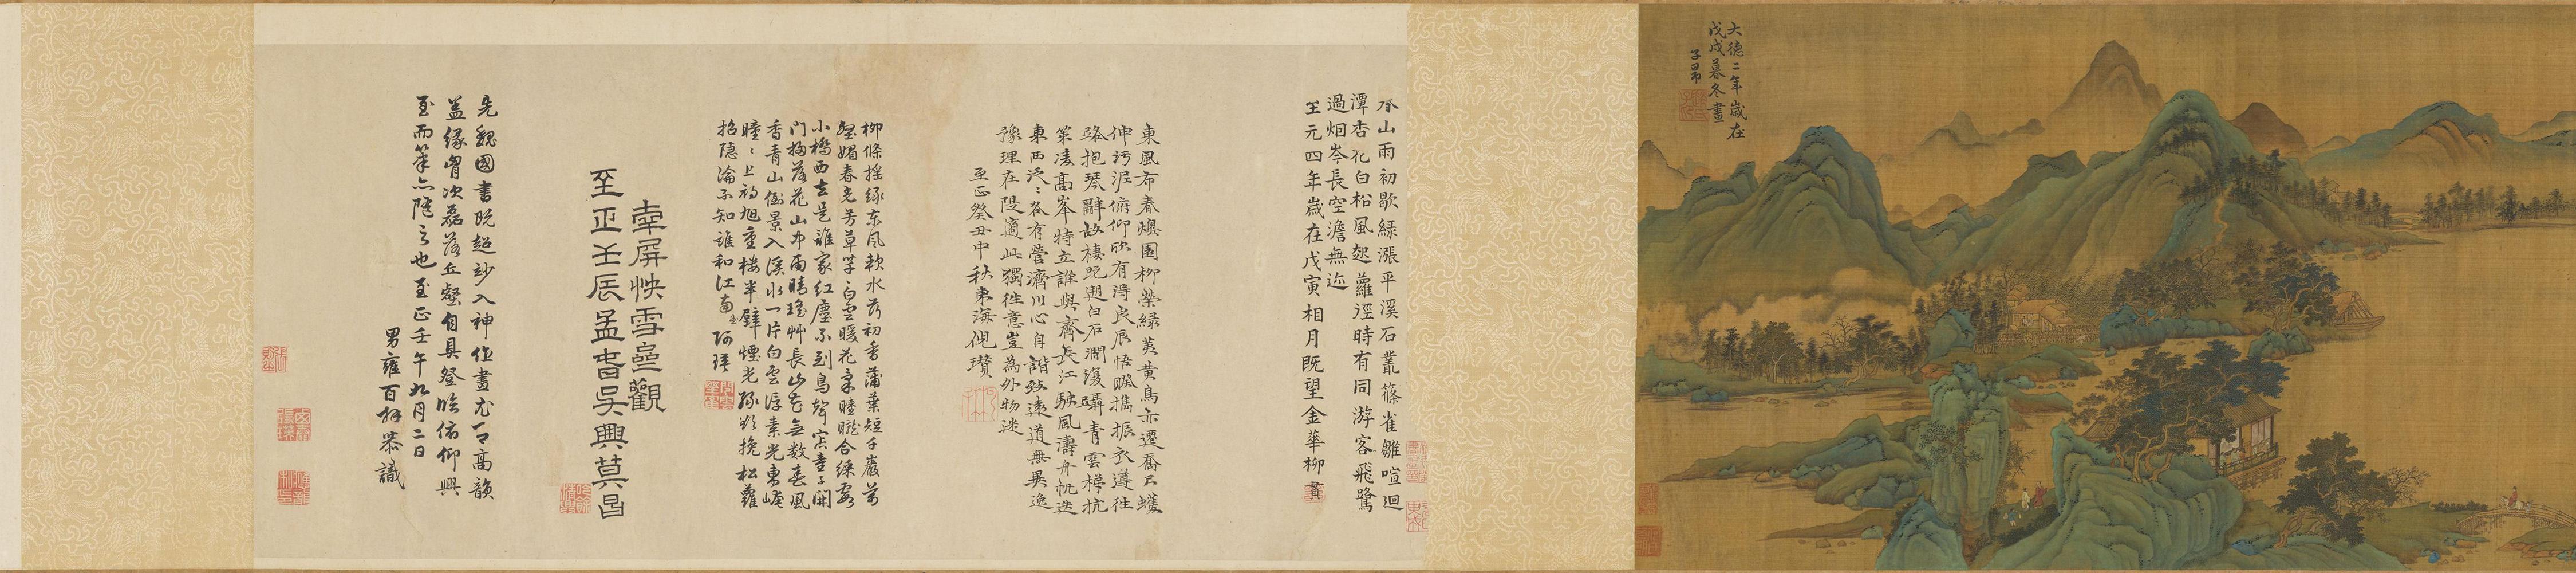 大德二年歲在
戊戌暮冬畫
子昂
山雨初歇綠漲平溪石叢篠雀雛喧迴
潭杏花白松風起蘿徑時有同游客飛鷺
過烟岑長空澹無迹
至元四年歲在戊寅相月既望金華柳貫
東風布春燠園柳榮綠英黄鳥亦遷喬尺蠖
伸污泥俯仰欣有得良辰悟瞻攜振衣遵往
路抱琴辭故棲既遡白石澗復躡青雲梯抗
策凌高峯特立誰與齊長江駛風濤舟帆迭
東西泛泛各有營濟川心自諧致遠道無異逸
豫理在隄適此獨往意豈為外物迷
至正癸丑中秋東海倪瓚
柳條搖綠東風軟水荇初香蒲葉短千巖萬
壑媚春光芳草芊芊白雲暖花氣曈曨合練霧
小橋西去是誰家紅塵不到鳥聲寂童子開
門掃落花山中雨晴瑤艸長山花無數春風
香青山倒景入溪水一片白雲浮素光東崦
曈曈上初旭重樓半壁煙光綠欲挽松蘿
招隱淪不知誰和江南曲 阿瑛
南屏快雪亭觀
至正壬辰孟春吳興莫昌
先魏國書既超妙入神作畫尤一一高韻
蓋緣胷次磊落丘壑自具登臨俯仰興
至而筆亦隨之也至正壬午九月二日
男雍百拜恭識